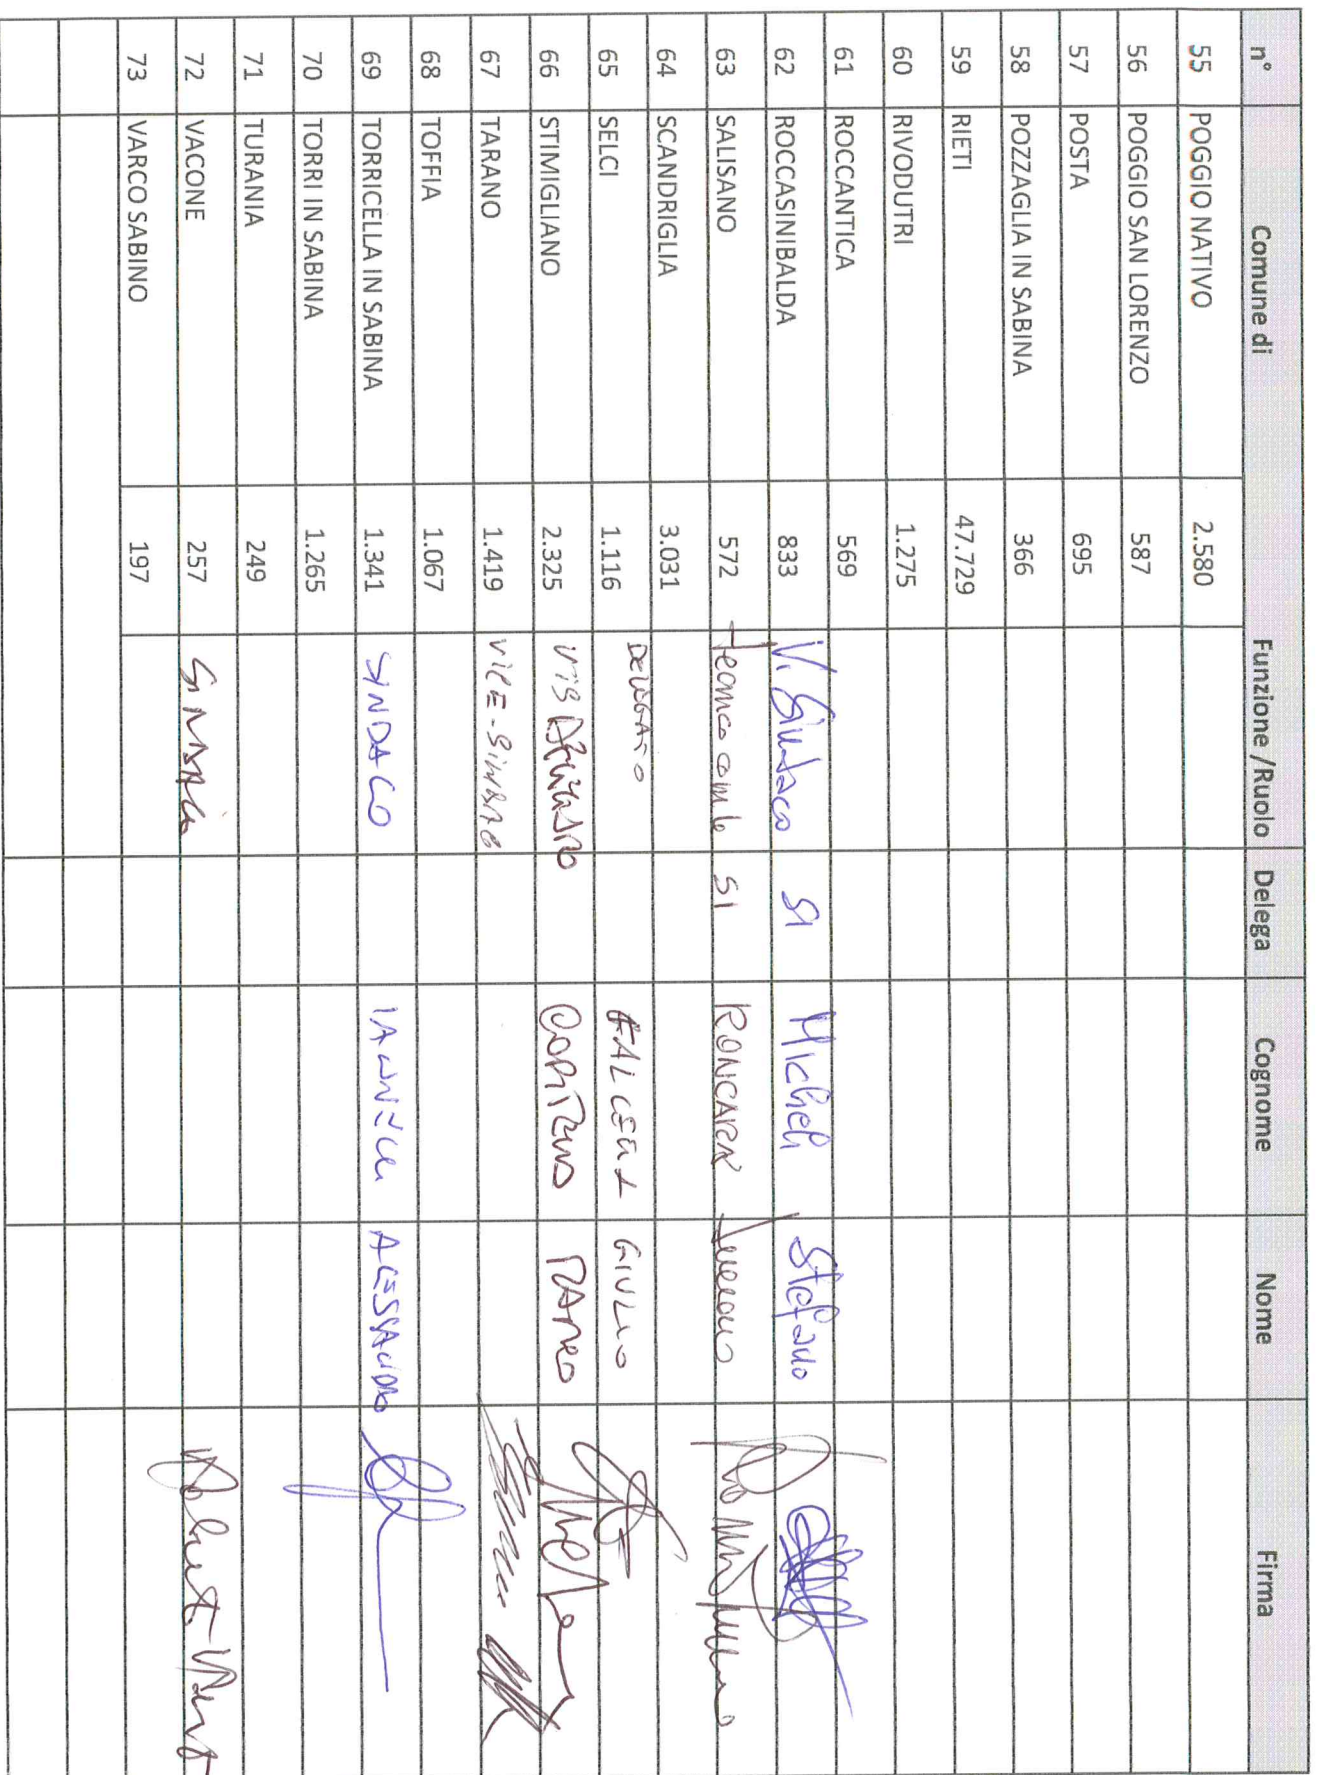 n° Comune di Funzione /Ruolo Delega Cognome Nome Firma
55 POGGIO NATIVO 2.580
56 POGGIO SAN LORENZO 587
57 POSTA 695
58 POZZAGLIA IN SABINA 366
59 RIETI 47.729
60 RIVODUTRI 1.275
61 ROCCANTICA 569
62 ROCCASINIBALDA 833 V. Sindaco SI Micheli Stefano
63 SALISANO 572 Tecnico SI
64 SCANDRIGLIA 3.031
65 SELCI 1.116 DELEGATO GIULIO
66 STIMIGLIANO 2.325
67 TARANO 1.419 VICE-SINDACO
68 TOFFIA 1.067
69 TORRICELLA IN SABINA 1.341 SINDACO ALESSANDRO
70 TORRI IN SABINA 1.265
71 TURANIA 249
72 VACONE 257
73 VARCO SABINO 197